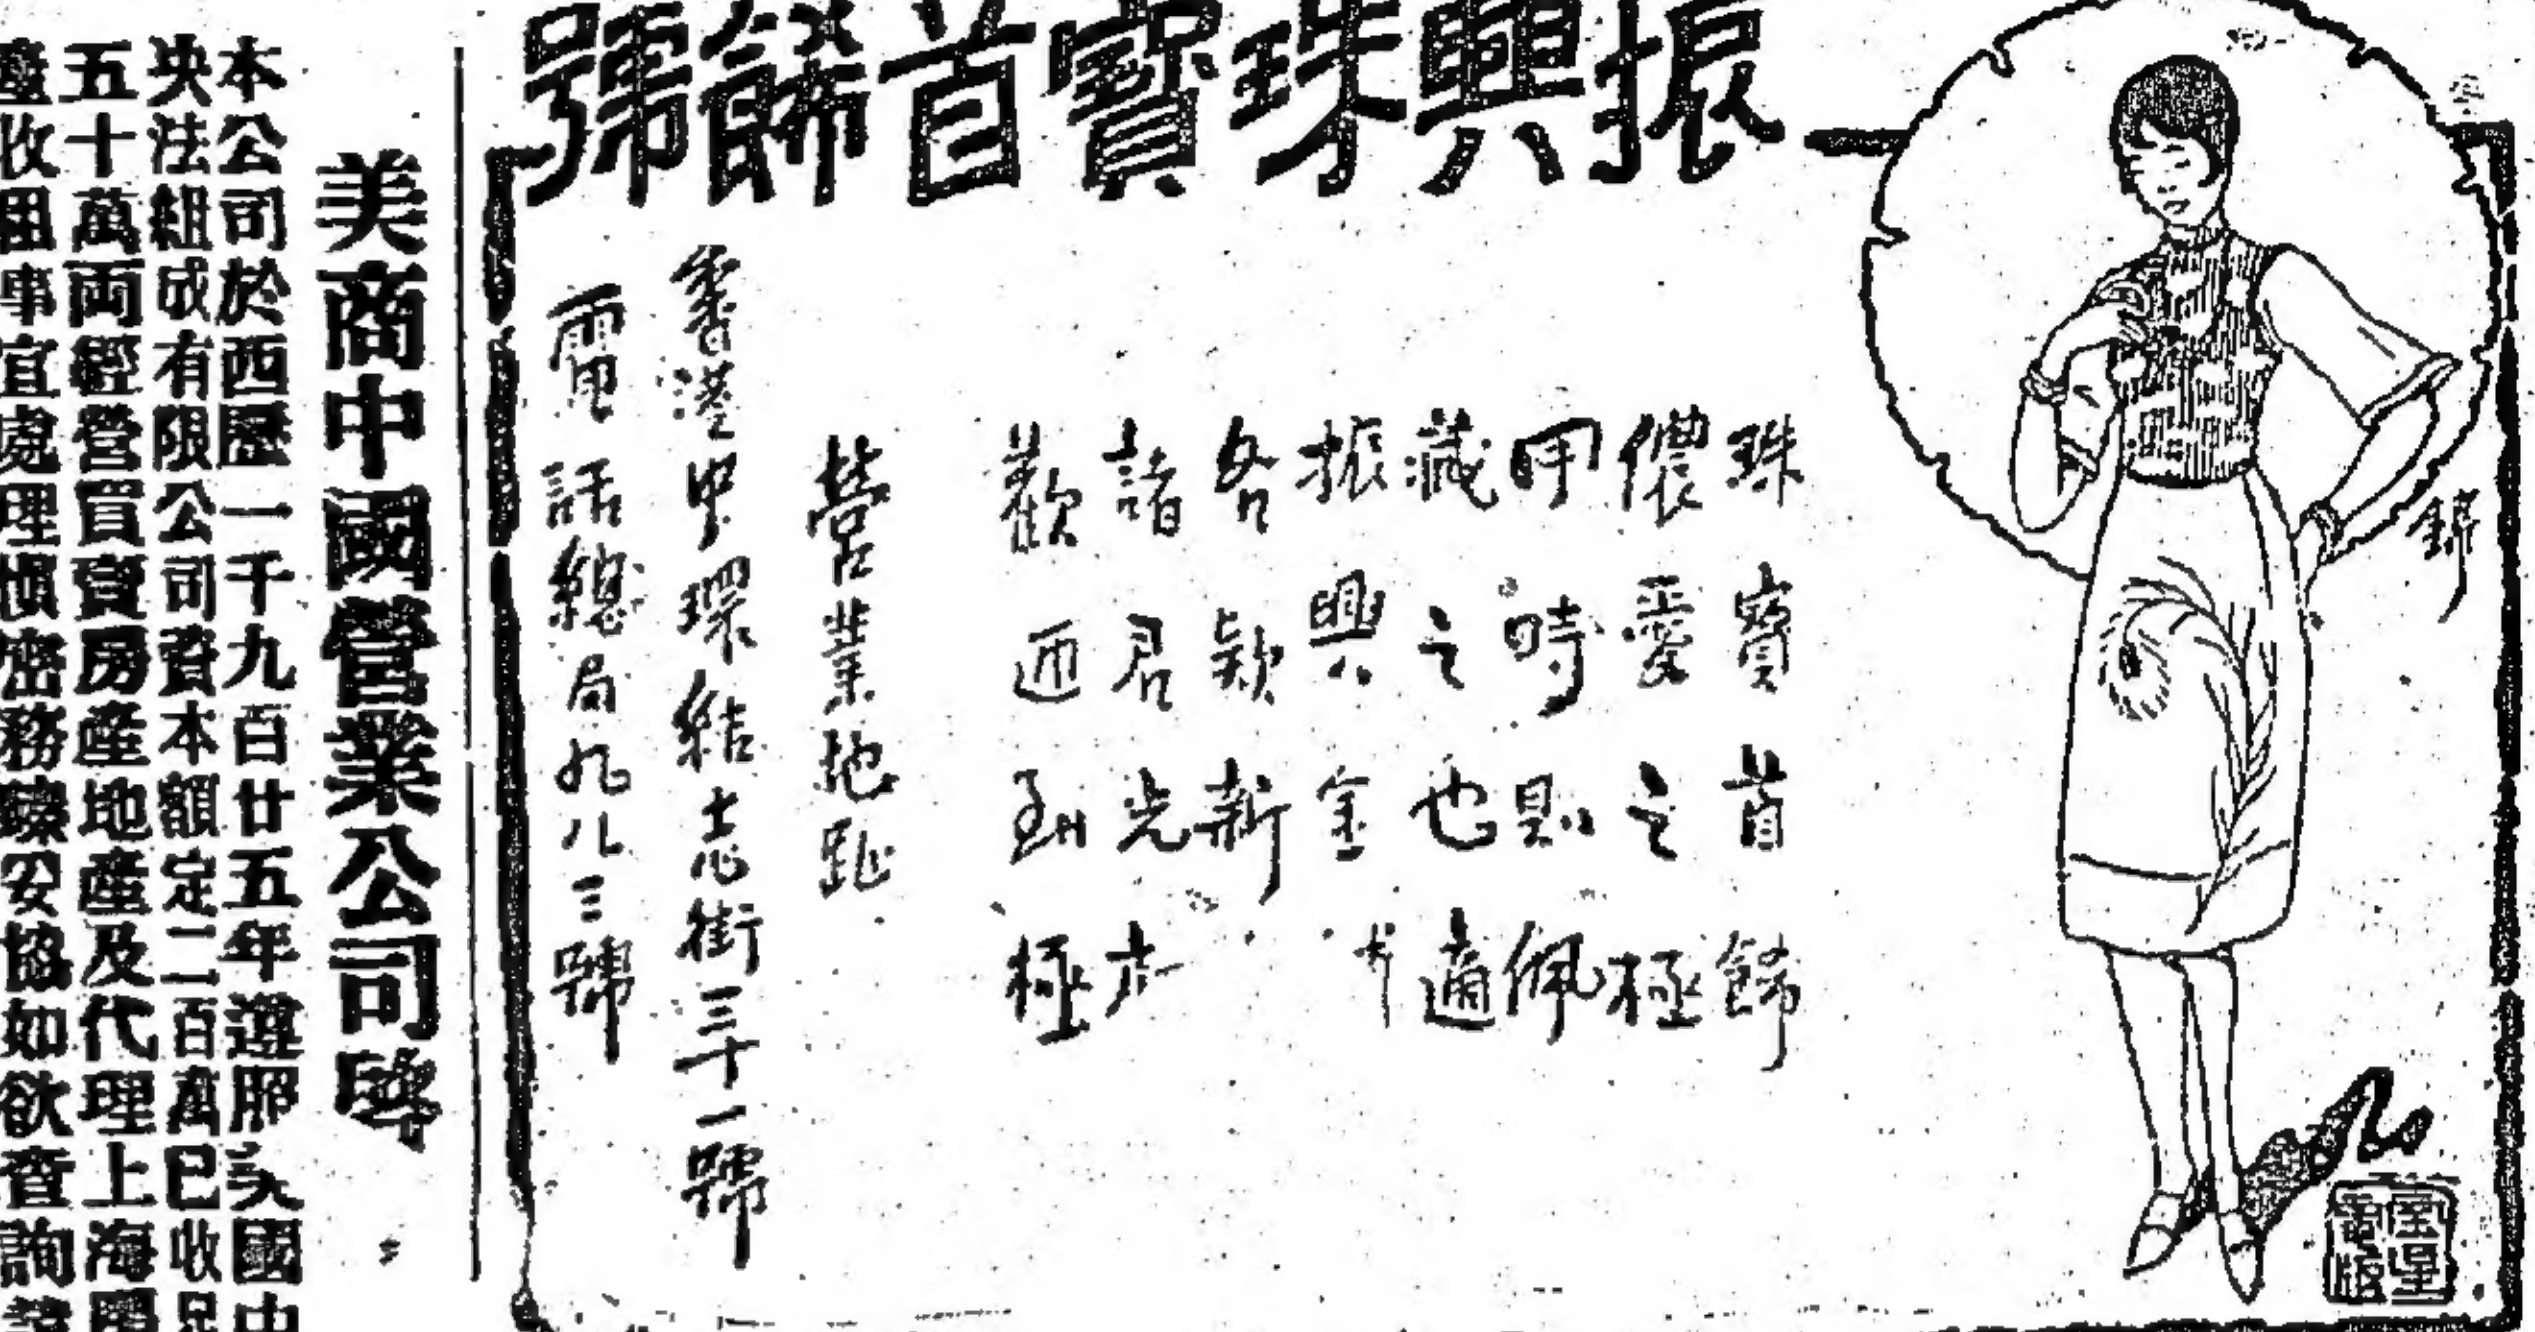 振興珠寶首飾號
錦
珠寶首飾
儂愛之極
時則佩
藏之也適
振興金
各款新
諸君光
歡迎到極
營業地趾
香港中環結志街三十一號
電話總局九八三號
美商中國營業公司
本公司於西歷一千九百廿五年遵照美國中
央法組成有限公司資本額定二百萬已收足
五十萬両經營買賣房產地產及代理上海
收租事宜處理慎密務臻安協如欲查詢請